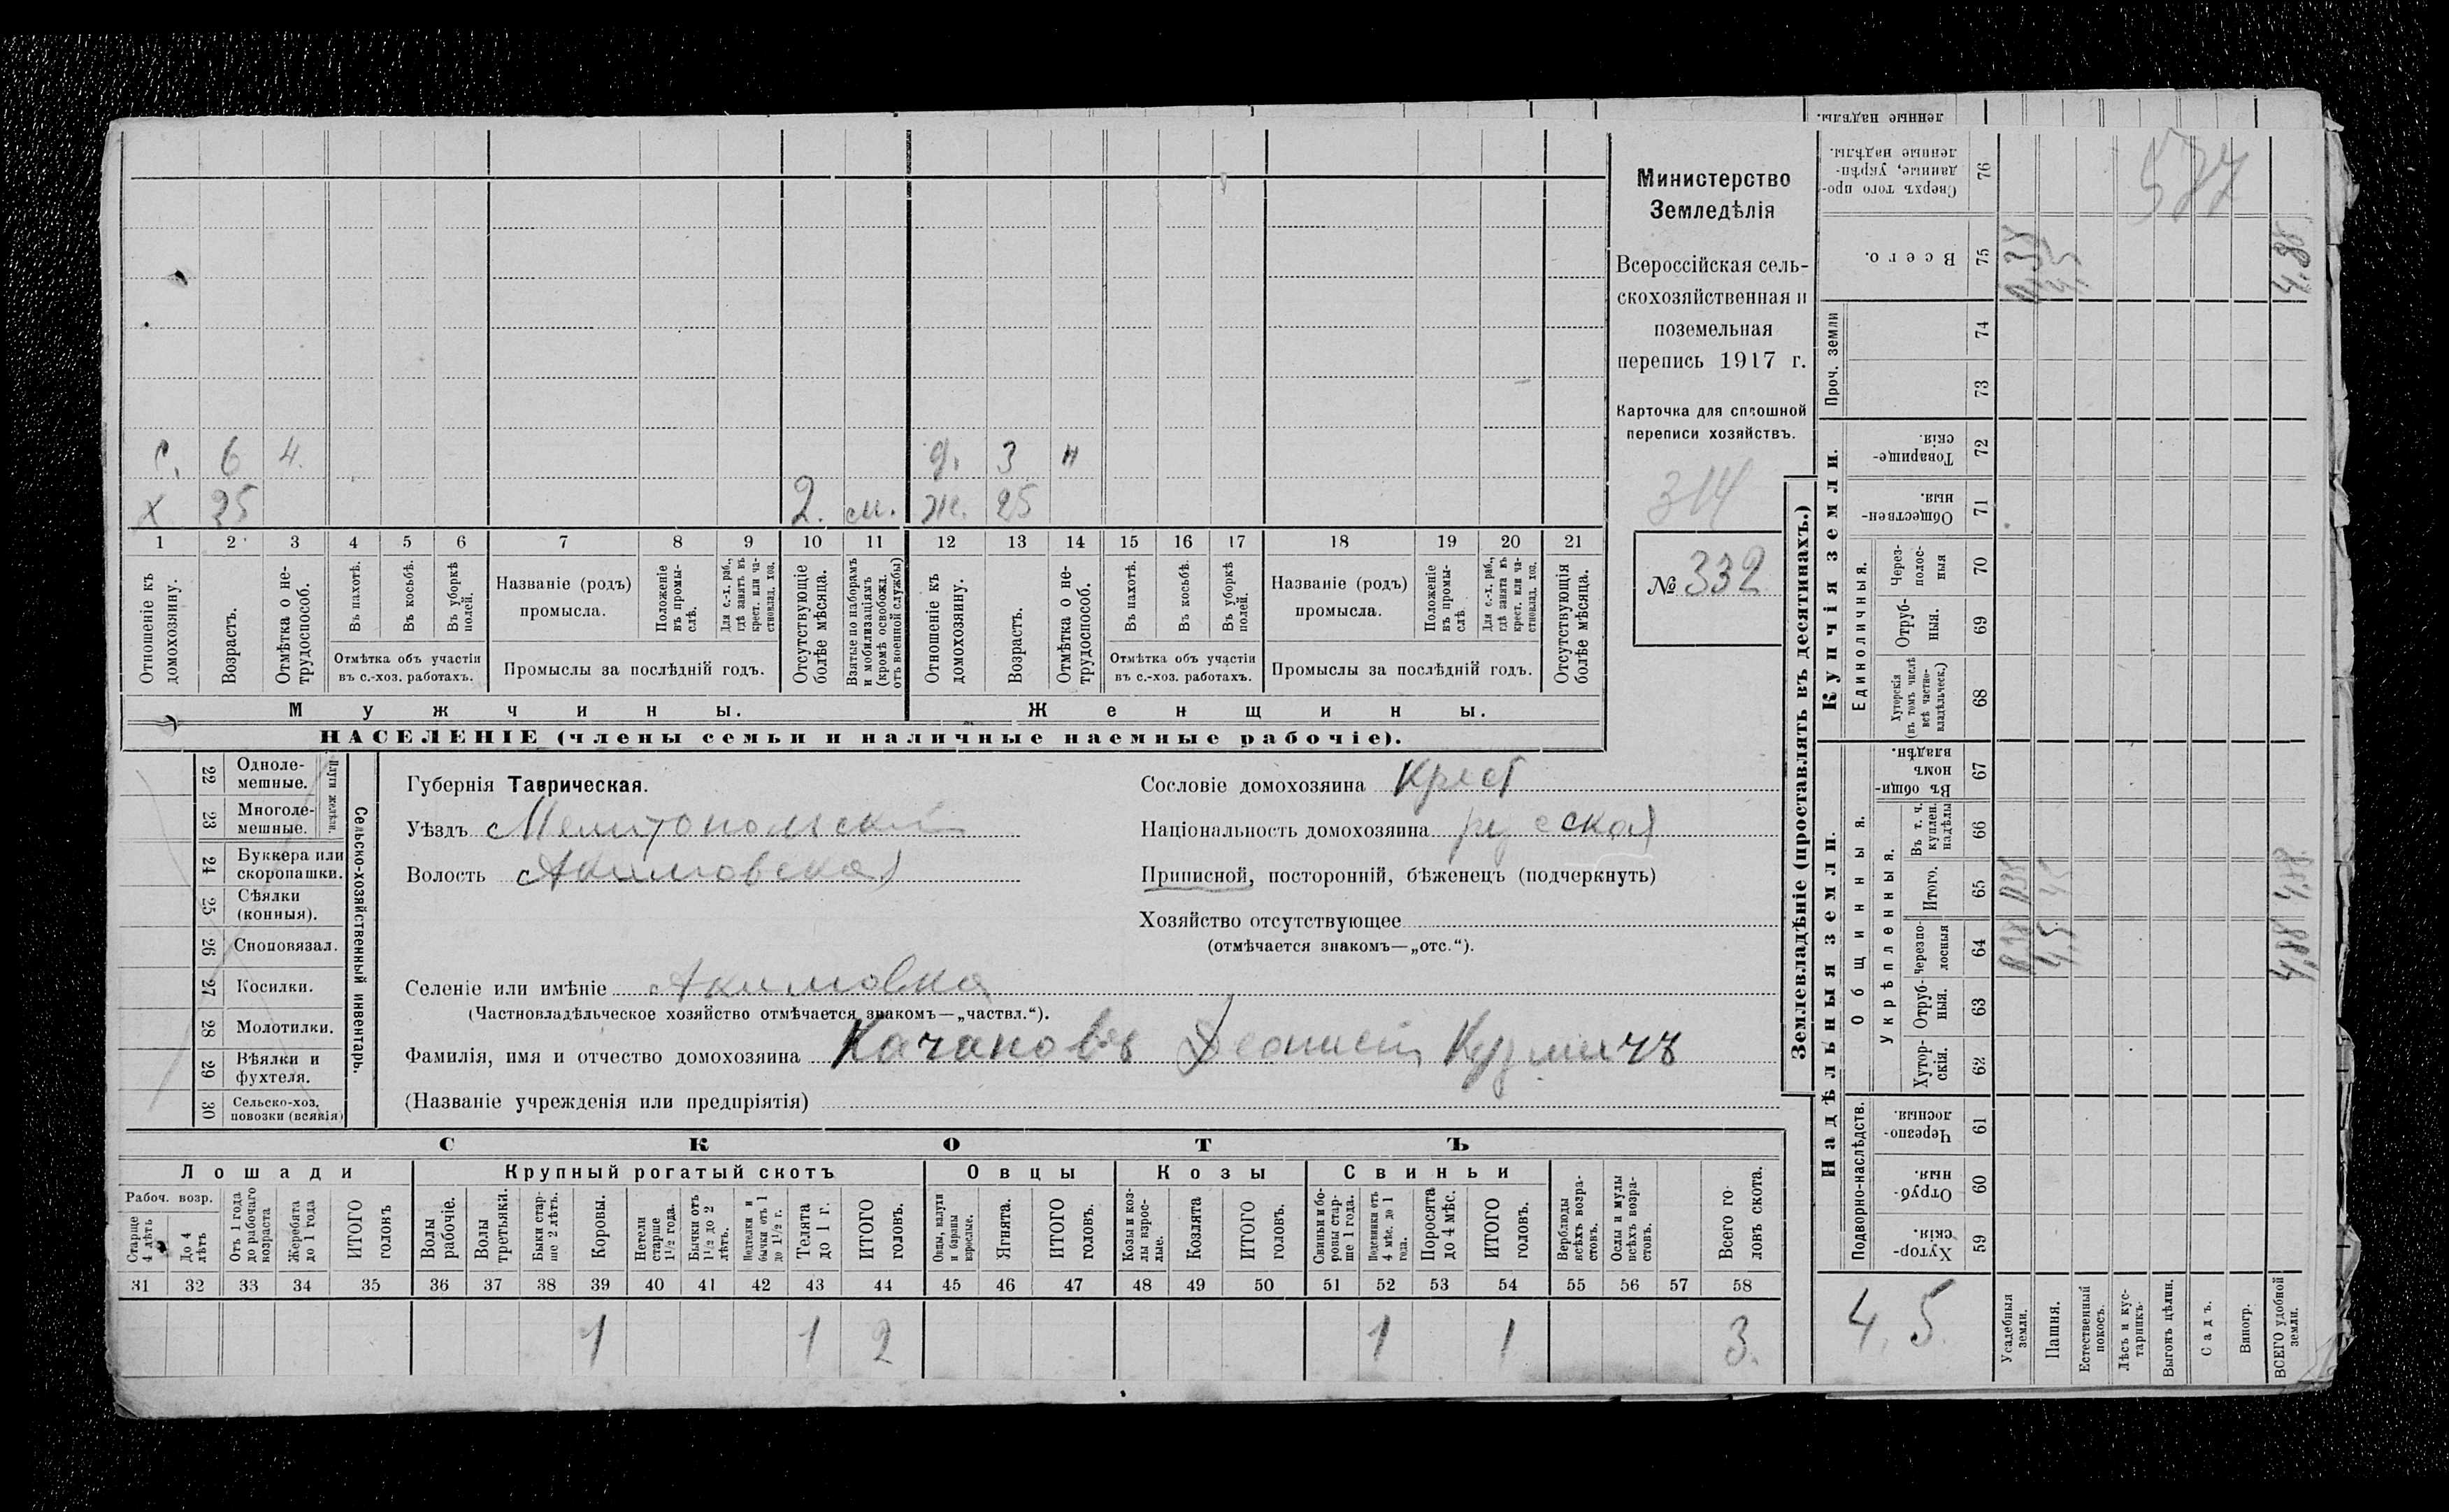 Министерство
Земледѣлія
Всероссійская сель-
скохозяйственная и
поземельная
перепись 1917 г.
Карточка для сплошной
переписи хозяйствъ.
314
№ 332
с. 6 4. д. 3 н
х 25 2. м. ж. 25
1 2 3 4 5 6 7 8 9 10 11 12 13 14 15 16 17 18 19 20 21
Отношеніе къ домохозяину.
Возрастъ.
Отмѣтка о не-трудоспособ.
Въ пахотѣ.
Въ косьбѣ.
Въ уборкѣ полей.
Отмѣтка объ участіи
въ с.-хоз. работахъ.
Названіе (родъ)
промысла.
Положеніе въ промы-слѣ.
Для с.-х. раб., гдѣ занятъ въ крест. или ча-стновлад. хоз.
Промыслы за послѣдній годъ.
Отсутствующіе болѣе мѣсяца.
Взятые по наборамъ и мобилизаціямъ (кромѣ освобожд. отъ военной службы)
Отношеніе къ домохозяину.
Возрастъ.
Отмѣтка о не-трудоспособ.
Въ пахотѣ.
Въ косьбѣ.
Въ уборкѣ полей.
Отмѣтка объ участіи
въ с.-хоз. работахъ.
Названіе (родъ)
промысла.
Положеніе въ промы-слѣ
Для с.-х. раб., гдѣ занята въ крест. или ча-стновлад. хоз.
Промыслы за послѣдній годъ.
Отсутствующія болѣе мѣсяца.
Мужчины. Женщины.
НАСЕЛЕНІЕ (члены семьи и наличные наемные рабочіе).
22 Одноле-мешные.
23 Многоле-мешные.
Плуги желѣзн.
24 Буккера или скоропашки.
25 Сѣялки (конныя).
26 Сноповязал.
27 Косилки.
28 Молотилки.
29 Вѣялки и фухтеля.
30 Сельско-хоз. повозки (всякія)
Сельско-хозяйственный инвентарь.
Губернія Таврическая.
Уѣздъ Мелитопольский
Волость Акимовская
Сословіе домохозяина Крест
Національность домохозяина русская
Приписной, посторонній, бѣженецъ (подчеркнуть)
Хозяйство отсутствующее
(отмѣчается знакомъ—„отс.“).
Селеніе или имѣніе Акимовка
(Частновладѣльческое хозяйство отмѣчается знакомъ—„частвл.“).
Фамилія, имя и отчество домохозяина Качановъ Кузмичъ
(Названіе учрежденія или предпріятія)
СКОТЪ
Лошади Крупный рогатый скотъ Овцы Козы Свиньи
Рабоч. возр.
Старше 4 лѣтъ
До 4 лѣтъ
Отъ 1 года до рабочаго возраста
Жеребята до 1 года
ИТОГО головъ
Волы рабочіе.
Волы третьяки.
Быки стар-ше 2 лѣтъ.
Коровы.
Нетели старше 1½ года.
Бычки отъ 1½ до 2 лѣтъ.
Нетелки и бычки отъ 1 до 1½ г.
Телята до 1 г.
ИТОГО головъ.
Овцы, валухи и бараны взрослые.
Ягнята.
ИТОГО головъ.
Козы и коз-лы взрос-лые.
Козлята
ИТОГО головъ.
Свиньи и бо-ровы стар-ше 1 года.
Подсвинки отъ 4 мѣс. до 1 года.
Поросята до 4 мѣс.
ИТОГО головъ.
Верблюды всѣхъ возра-стовъ.
Ослы и мулы всѣхъ возра-стовъ.
Всего го-ловъ скота.
31 32 33 34 35 36 37 38 39 40 41 42 43 44 45 46 47 48 49 50 51 52 53 54 55 56 57 58
1 1 2 1 1 3.
Землевладѣніе (проставлять въ десятинахъ.)
Купчія земли.
Надѣльныя земли.
ленные надѣлы.
Сверхъ того про-данные, укрѣп-ленные надѣлы. 76
577
Всего. 75
4,88
Проч. земли
74
73
Товарище-скія. 72
Обществен-ныя. 71
Единоличныя.
Через-полос-ныя 70
Отруб-ныя. 69
Хуторскія (въ томъ числѣ всѣ частно-владѣльческ.) 68
Общинныя.
Въ общи-номъ владѣн. 67
Укрѣпленныя.
Въ т. ч. куплен. надѣлы 66
Итого. 65
4,88
Черезпо-лосныя 64
4,5
4,88
Отруб-ныя. 63
Хутор-скія. 62
Подворно-наслѣдств.
Черезпо-лосныя. 61
Отруб-ныя. 60
Хутор-скія. 59
4,5
Усадебныя земли.
Пашня.
Естественный покосъ.
Лѣсъ и кус-тарникъ.
Выгонъ цѣлин.
Садъ.
Виногр.
ВСЕГО удобной земли.